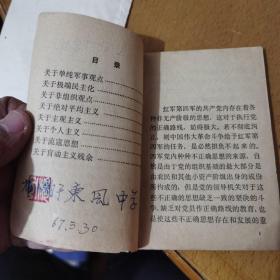 目录
关于单纯军事观点
关于极端民主化
关于非组织观点
关于绝对平均主义
关于主观主义
关于个人主义
关于流寇思想
关于盲动主义残余
东风中学
67.3.30
红军第四军的共产党内存在着各
种非无产阶级的思想，这对于执行党
的正确路线，妨碍极大。若不彻底纠
正，则中国伟大革命斗争给予红军第
四军的任务，是必然担负不起来的。
四军党内种种不正确思想的来源，自
然是由于党的组织基础的最大部分是
由农民和其他小资产阶级出身的成份
所构成的；但是党的领导机关对于这
些不正确的思想缺乏一致的坚决的斗
争，缺乏对党员作正确路线的教育，也
是使这些不正确思想存在和发展的重
1